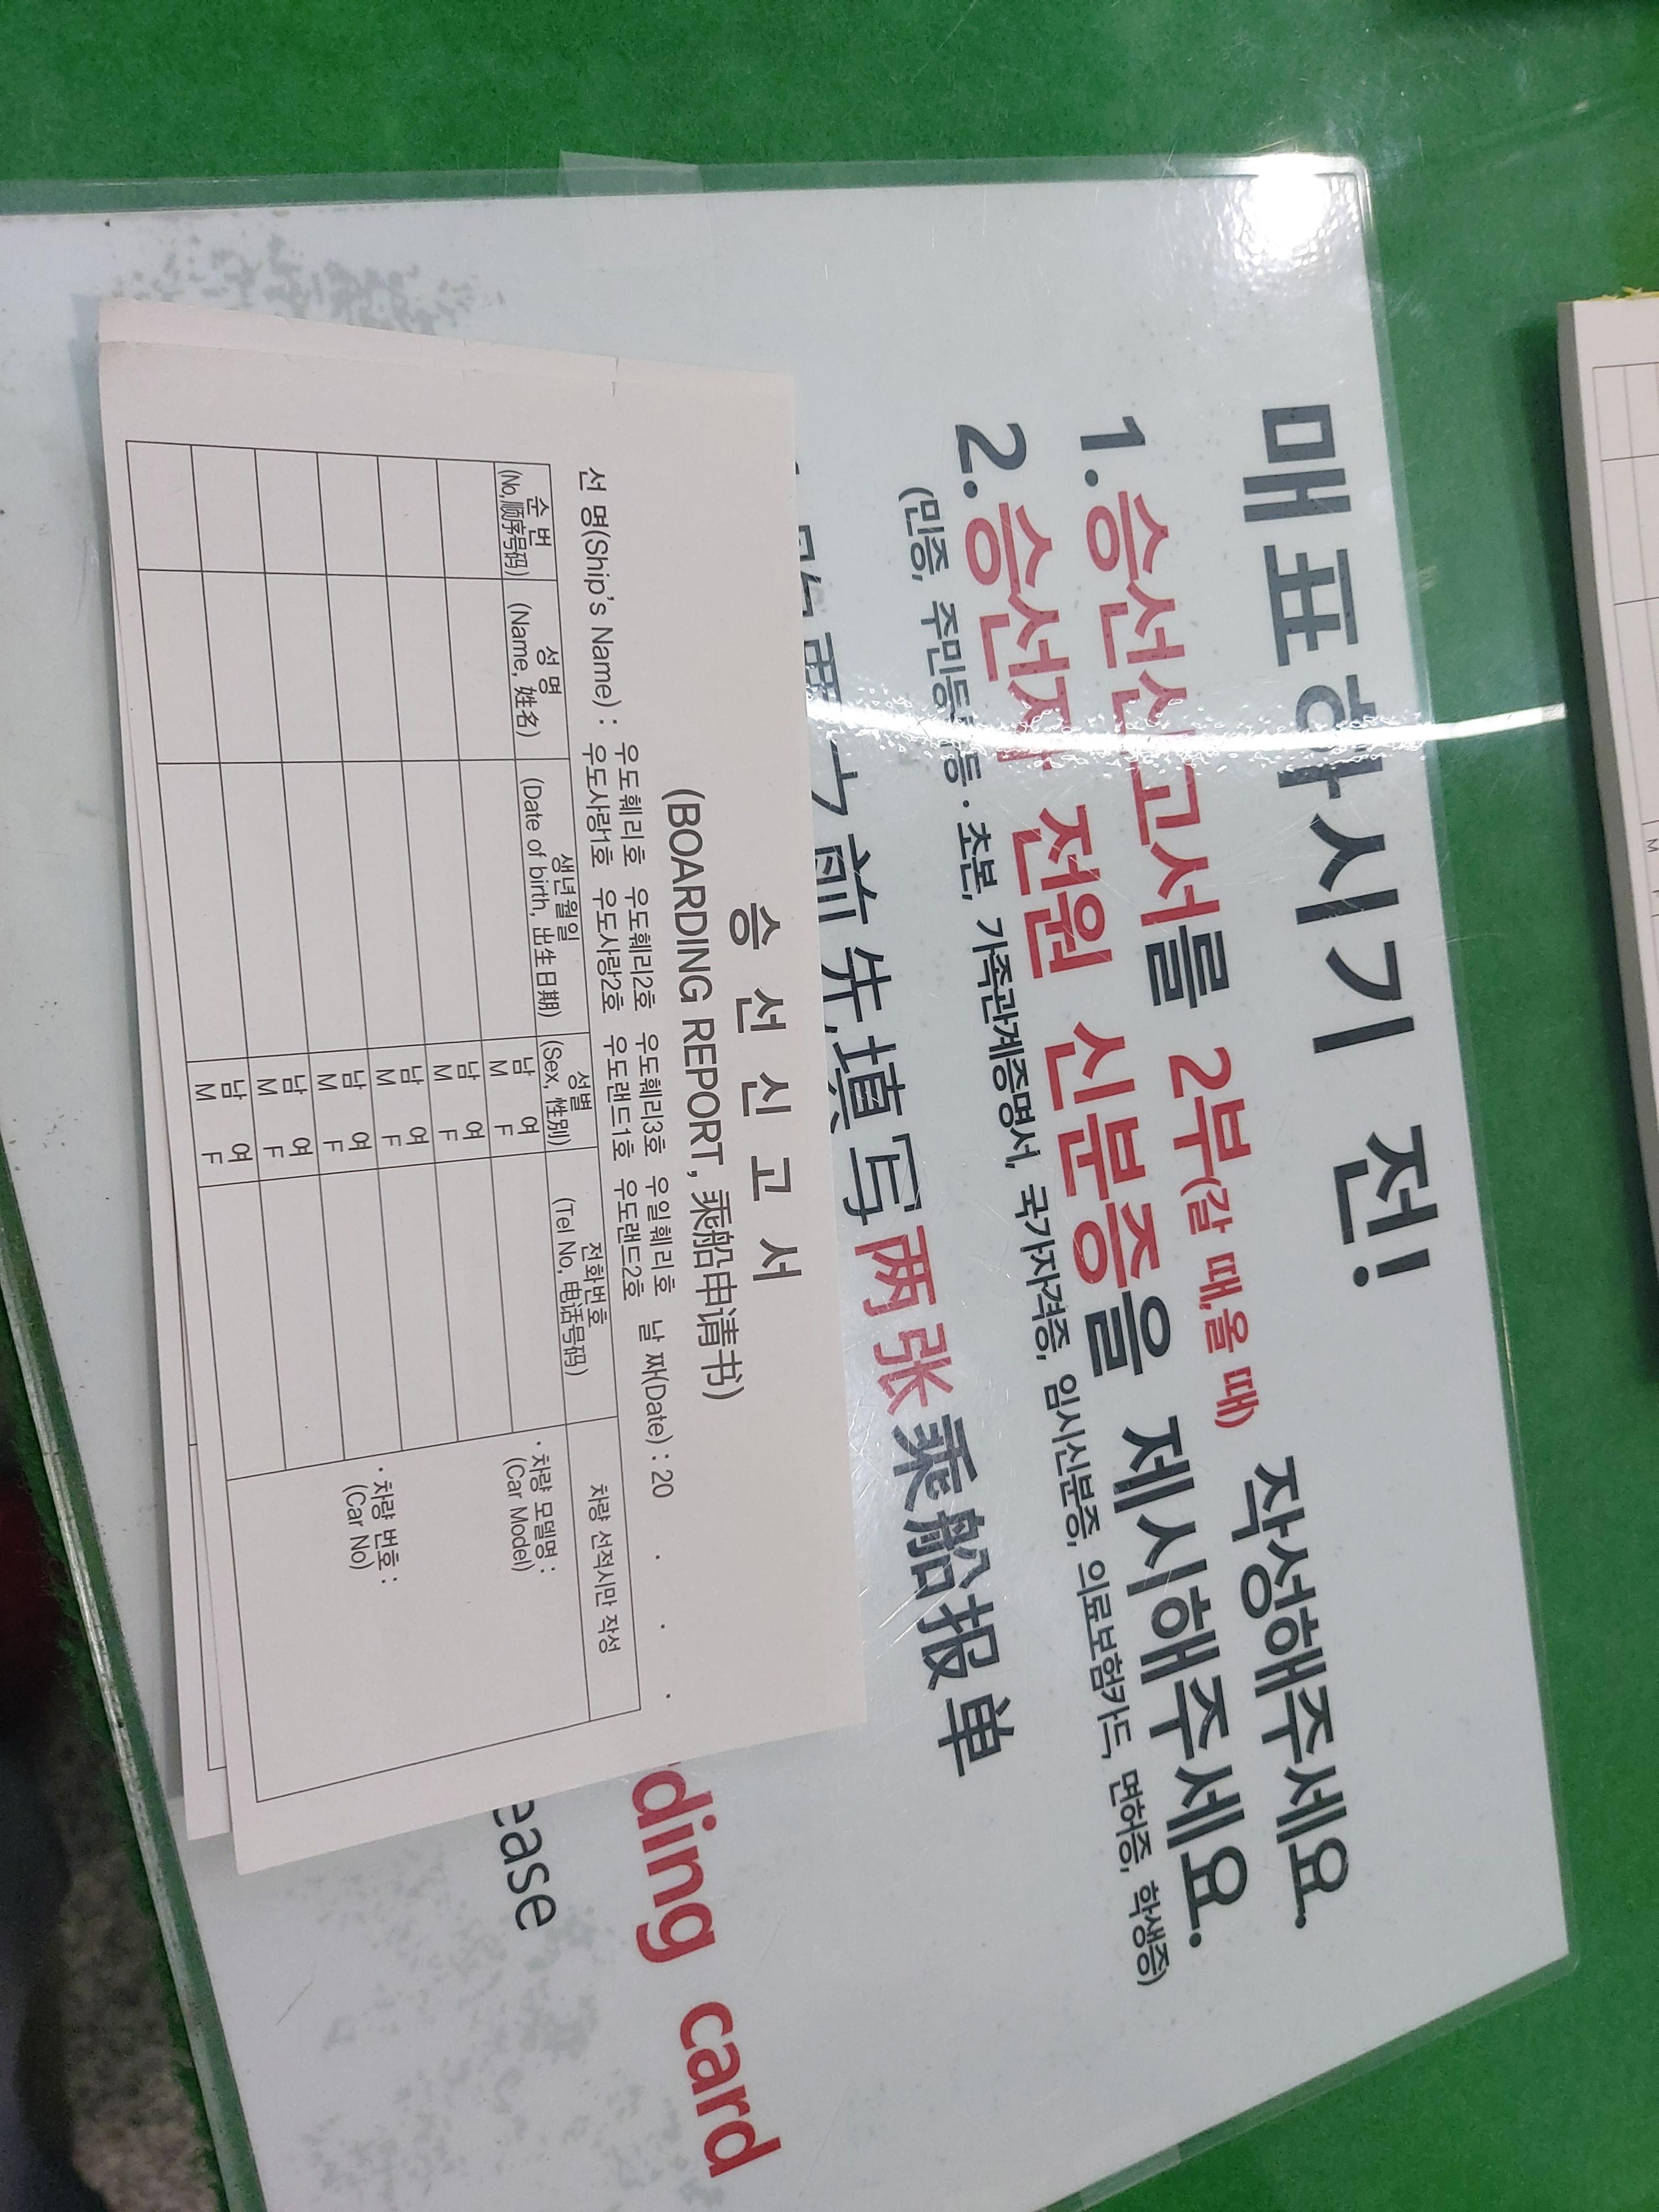 매표하시기 전!
1.승선신고서를 2부(갈 때,올 때) 작성해주세요.
2.승선자 전원 신분증을 제시해주세요.
(민증, 주민등록등·초본, 가족관계증명서, 국가자격증, 임시신분증, 의료보험카드, 면허증, 학생증)
票之前先填写两张乘船报单
card
승 선 신 고 서
(BOARDING REPORT, 乘船申请书)
우도훼리호 우도훼리2호 우도훼리3호 우일훼리호
선 명(Ship's Name) : 우도사랑1호 우도사랑2호 우도랜드1호 우도랜드2호 날 짜(Date) : 20 . . .
순 번 성 명 생년월일 성별 전화번호 차량 선적시만 작성
(No,顺序号码) (Name, 姓名) (Date of birth, 出生日期) (Sex, 性別) (Tel No, 电话号码)
남 여
M F
· 차량 모델명 :
(Car Model)
남 여
M F
남 여
M F
· 차량 번호 :
(Car No)
남 여
M F
남 여
M F
남 여
M F
M F